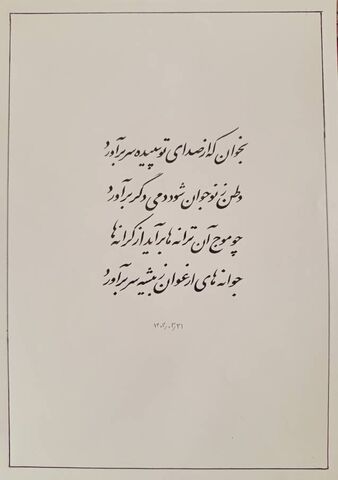 بخوان که از صدای تو سپیده سر برآورد
وطن ز نو جوان شود دمی دگر برآورد
چو موج آن ترانه ها برآید از کرانه ها
جوانه های ارغوان ز بیشه سر برآورد